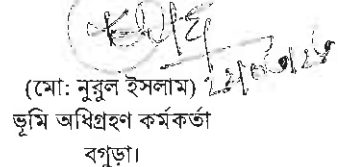 (মো: নুরুল ইসলাম)
ভূমি অধিগ্রহণ কর্মকর্তা
বগুড়া।